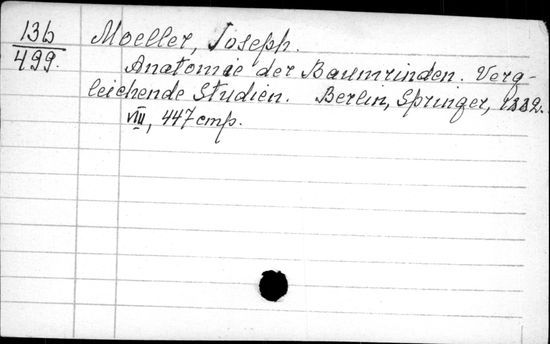 136
499.
Moeller, Joseph.
Anatomie der Baumrinden. Verg-
leichende Studien. Berlin, Springer, 1882.
VIII, 447 cmp.